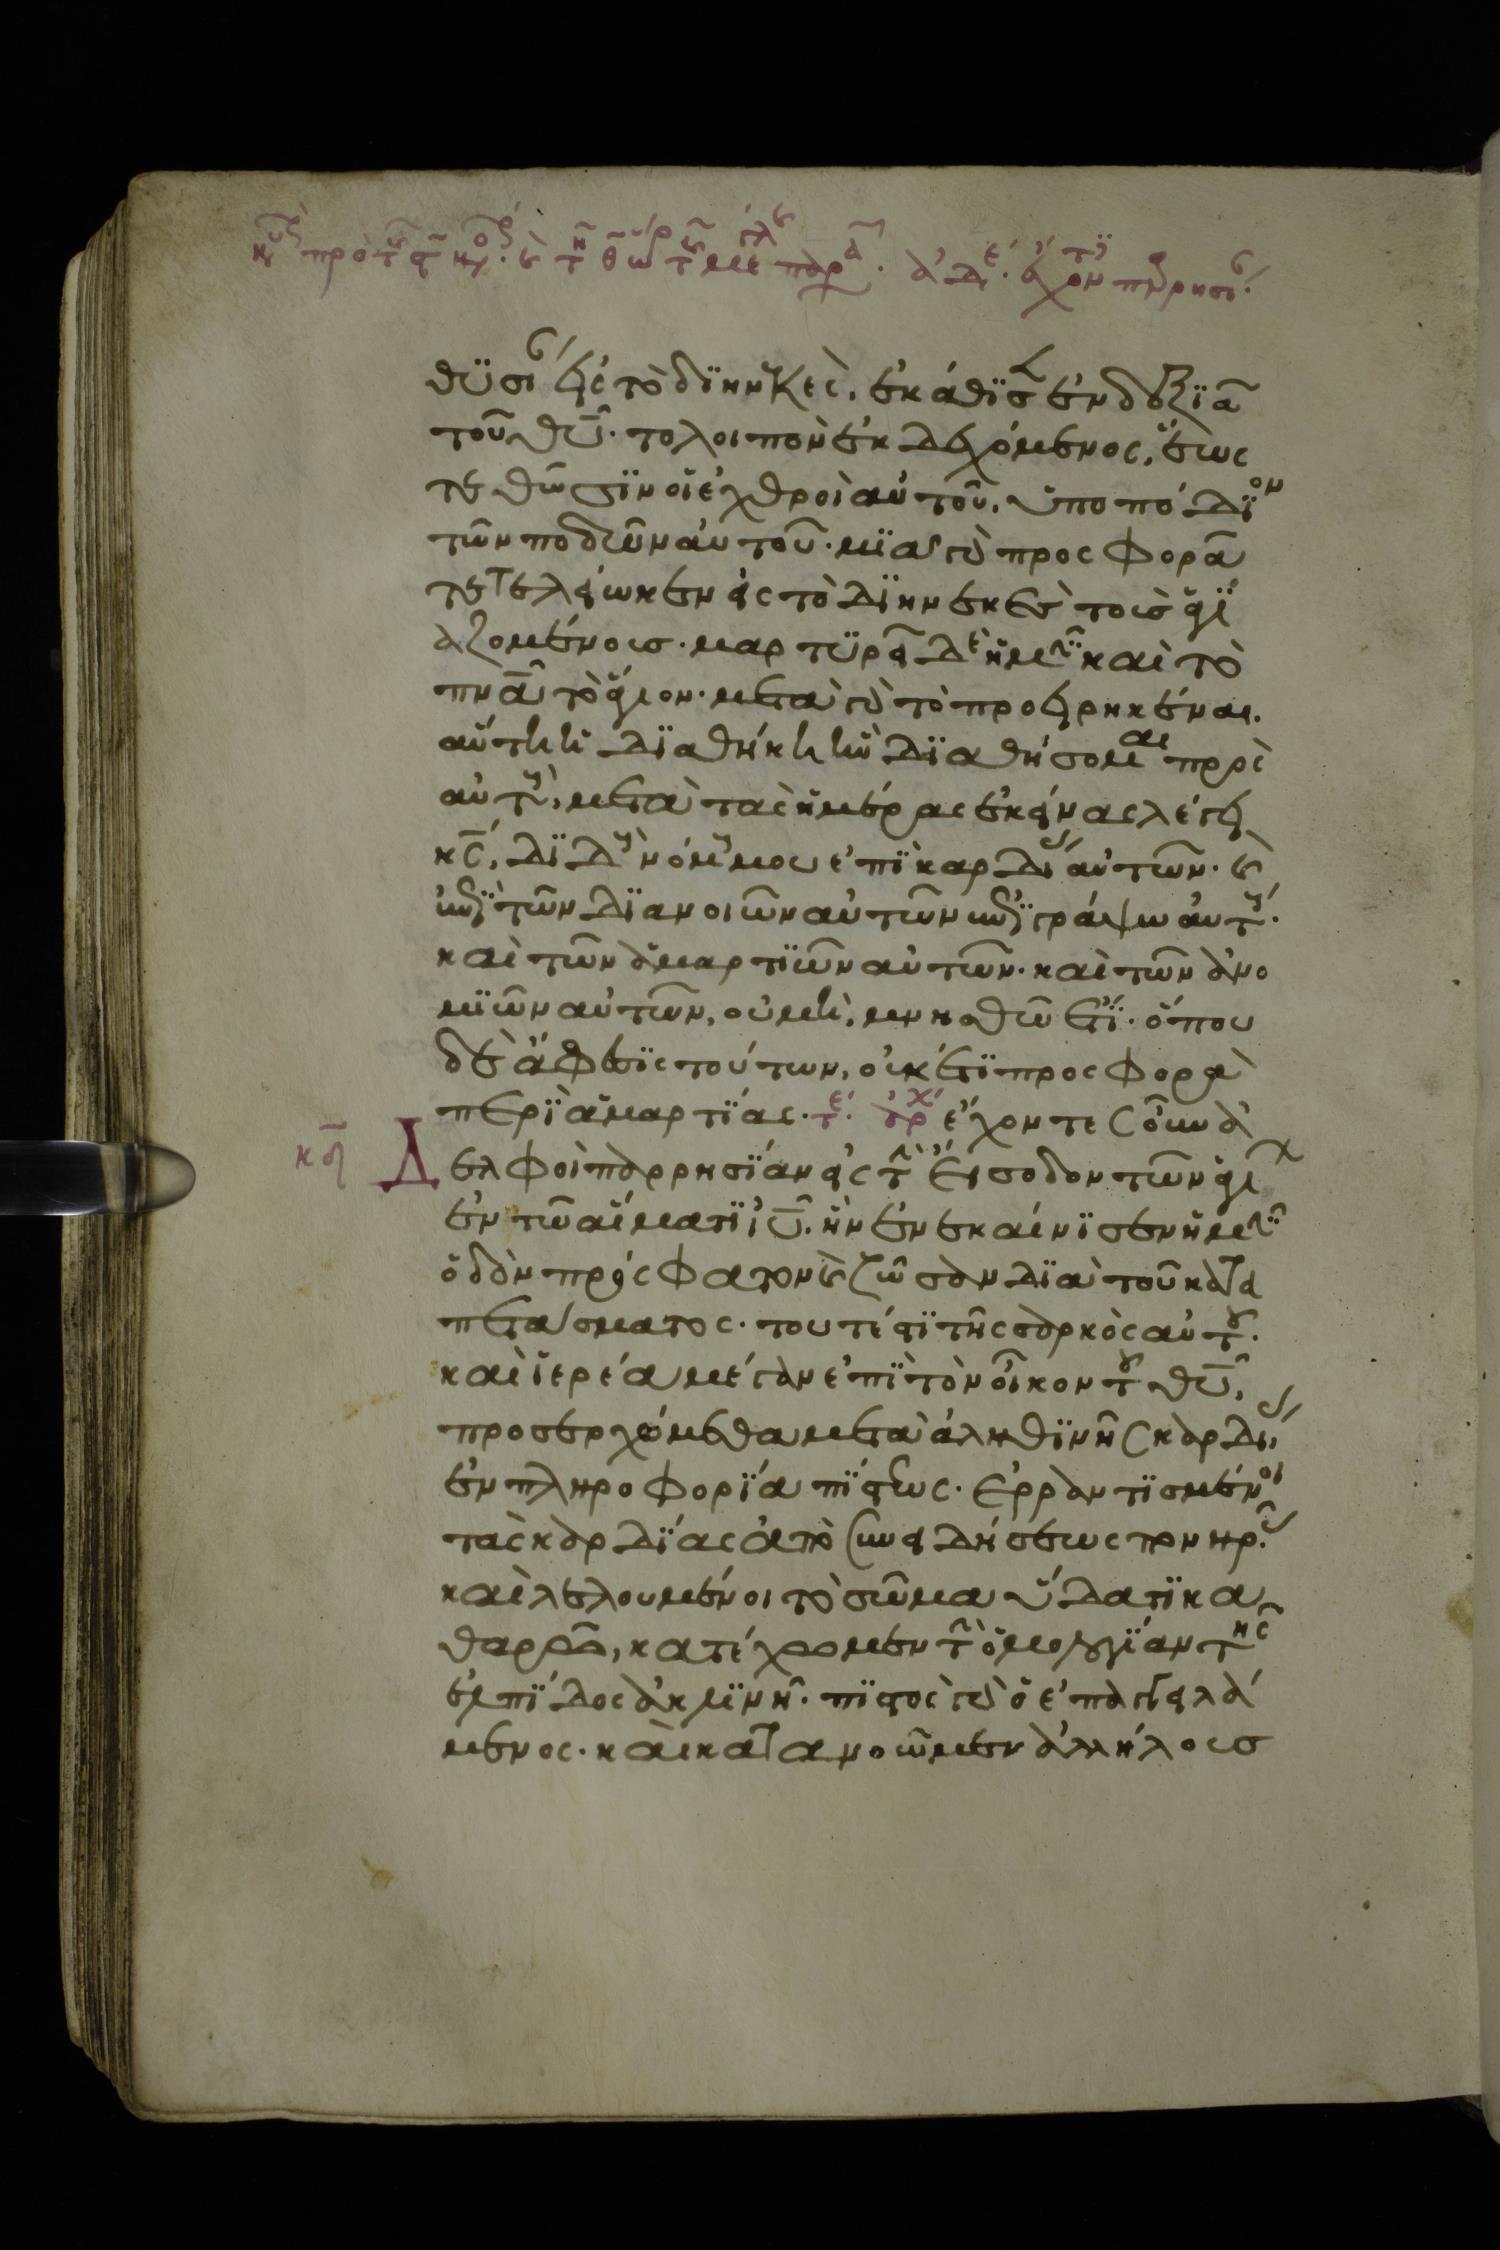 θϋσι εἰς τὸ δϊηνεκὲς, ἐκάθϊσεν ἐν δεξϊᾶ
τοῦ θῡ̂· τολοιπὸν ἐκδεχόμενος, ἕως
τεθῶσϊν οἱ ἐχθροὶ αὐτοῦ, ὑποπόδϊον
τῶν ποδῶν αὐτοῦ· μϊα γὰρ προσφορᾶ
τετελείωκεν εἰς τὸ δϊηνεκὲς τοὺς ἁγϊ
αζομένους· μαρτϋρεῖ δὲ ἡμῖν καὶ τὸ
πνᾱ̂ τὸ ἅγιον· μετὰ γὰρ τὸ προειρηκέναι,
αὕτη ἡ δϊαθήκη ἣν δϊαθήσομαι πρὸς
αὐτοὺς, μετὰ τὰς ἡμέρας ἐκείνας λέγει
κ̄ς, δϊδοὺς νόμους μου ἐπϊ καρδίας αὐτῶν· καὶ
ἐπϊ τῶν δϊανοιῶν αὐτῶν ἐπϊγράψω αὐτούς·
καὶ τῶν ἁμαρτϊῶν αὐτῶν· καὶ τῶν ἀνο
μϊῶν αὐτῶν, οὐ μὴ, μνησθῶ ἔτϊ· ὅπου
δὲ ἄφεσϊς τούτων, οὐκέτϊ προσφορὰ
περϊ ἁμαρτϊας· τέ· ἀρχ ἔχοντες οὖν ἀ
Δελφοὶ παρρησϊαν εἰς τὴν εἴσοδον τῶν ἁγίων
ἐν τῶ αἵματϊ ῑῡ. ἣν ἐνεκαίνϊσεν ἡμῖν
ὁδὸν πρόσφατον καὶ ζῶσαν δϊὰ τοῦ κατα
πετάσματος· τουτέστϊ τῆς σαρκὸς αὐτοῦ·
καὶ ἱερέα μέγαν ἐπϊ τὸν οἶκον τοῦ θῡ̂,
προσερχόμεθα μετὰ ἀληθϊνῆς καρδίας,
ἐν πληροφορϊα πϊστεως· ἐρραντϊσμένοι
τὰς καρδϊας ἀπὸ συνειδήσεως πονηρᾶς·
καὶ λελουμένοι τὸ σῶμα ὕδατϊ κα
θαρῶ, κατέχωμεν τὴν ὁμολογϊαν τῆς
ἐλπϊδος ἀκλϊνῆ· πϊστὸς γὰρ ὁ ἐπαγγειλά
μενος· καὶ κατανοῶμεν ἀλλήλους